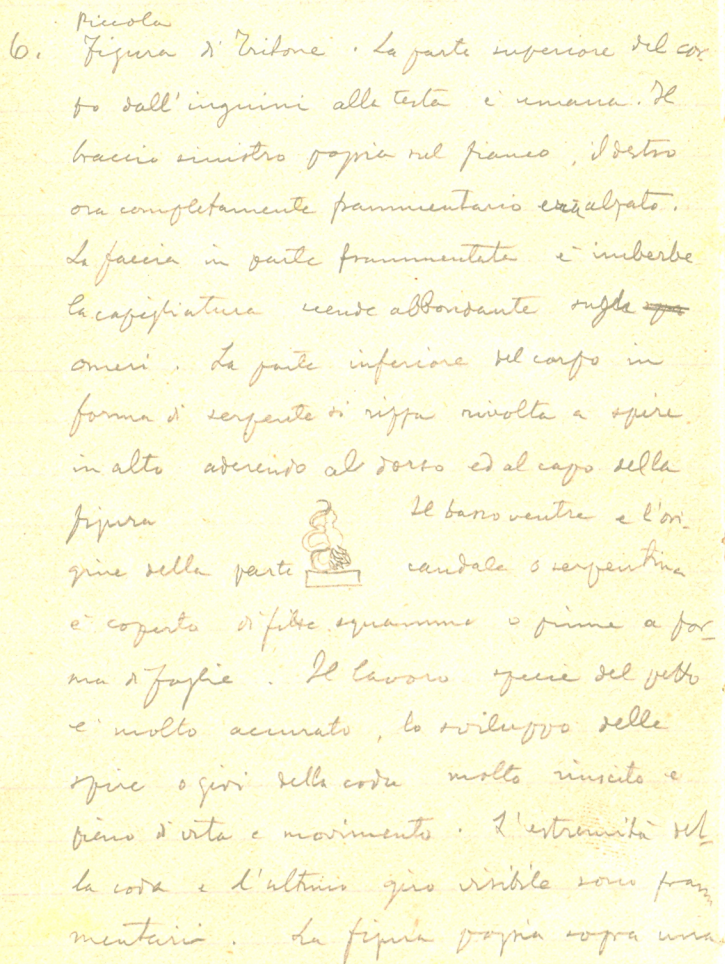 Piccola
6. Figura di Tritone. La parte superiore del cor-
po dall'inguini alla testa è umana. Il
braccio sinistro poggia sul fianco, il destro
ora completamente frammentario era alzato.
La faccia in parte frammentata è imberbe
la capigliatura scende abbondante sugli
omeri. La parte inferiore del corpo in
forma di serpente si rivolta a spire
in alto aderendo al dorso ed al capo della
figura Il basso ventre e l'ori-
gine della parte caudale o serpentina
è coperta di squamme o pinne a for-
ma di foglie. Il lavoro specie del petto
è molto accurato, lo sviluppo delle
spire o giri della coda molto riuscito e
pieno di vita e movimento. L'estremità del-
la coda e l'ultimo giro visibile sono fram-
mentari. La figura poggia sopra una